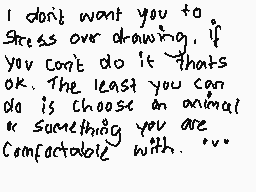 I don't want you to
stress over drawing, if
you can't do it thats
ok. The least you can
do is choose an animal
or something you are
comfortable with. "v"